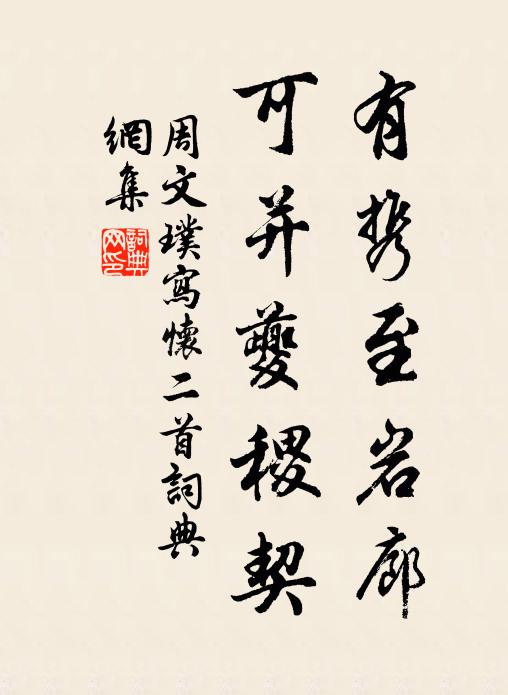 有携至岩廊
可并夔稷契
周文璞寫懷二首詞典
網集
詞典
网印